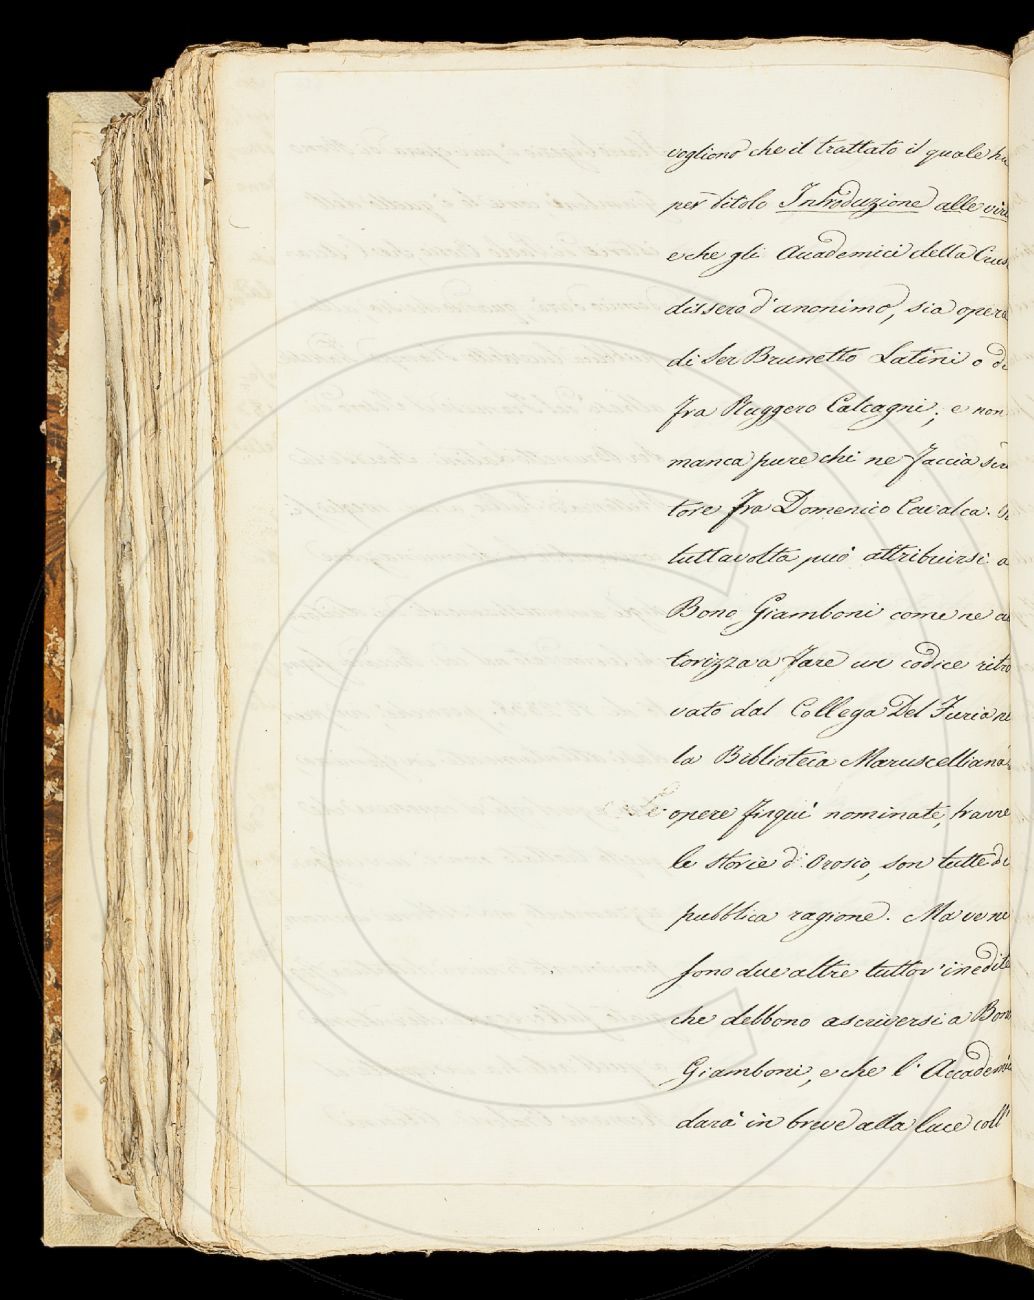 vogliono che il trattato il quale ha
per titolo Introduzione alle virt
e che gli Accademici della Crus
dissero d'anonimo, sia opera
di Ser Brunetto Latini o di
Fra Ruggero Calcagni; e non
manca pure chi ne faccia
tore Fra Domenico Cavalca.
tuttavolta può attribuirsi a
Bono Giamboni come ne au
torizza a fare un codice ritro
vato dal Collega Del Furia ne
la Biblioteca Maruscelliana.
Le opere finqui nominate, tranne
le storie d'Orosio, son tutte di
pubblica ragione. Ma ve ne
sono due altre tuttor' inedite
che debbono ascriversi a Bon
Giamboni, e che l'Accademia
darà in breve alla luce coll'